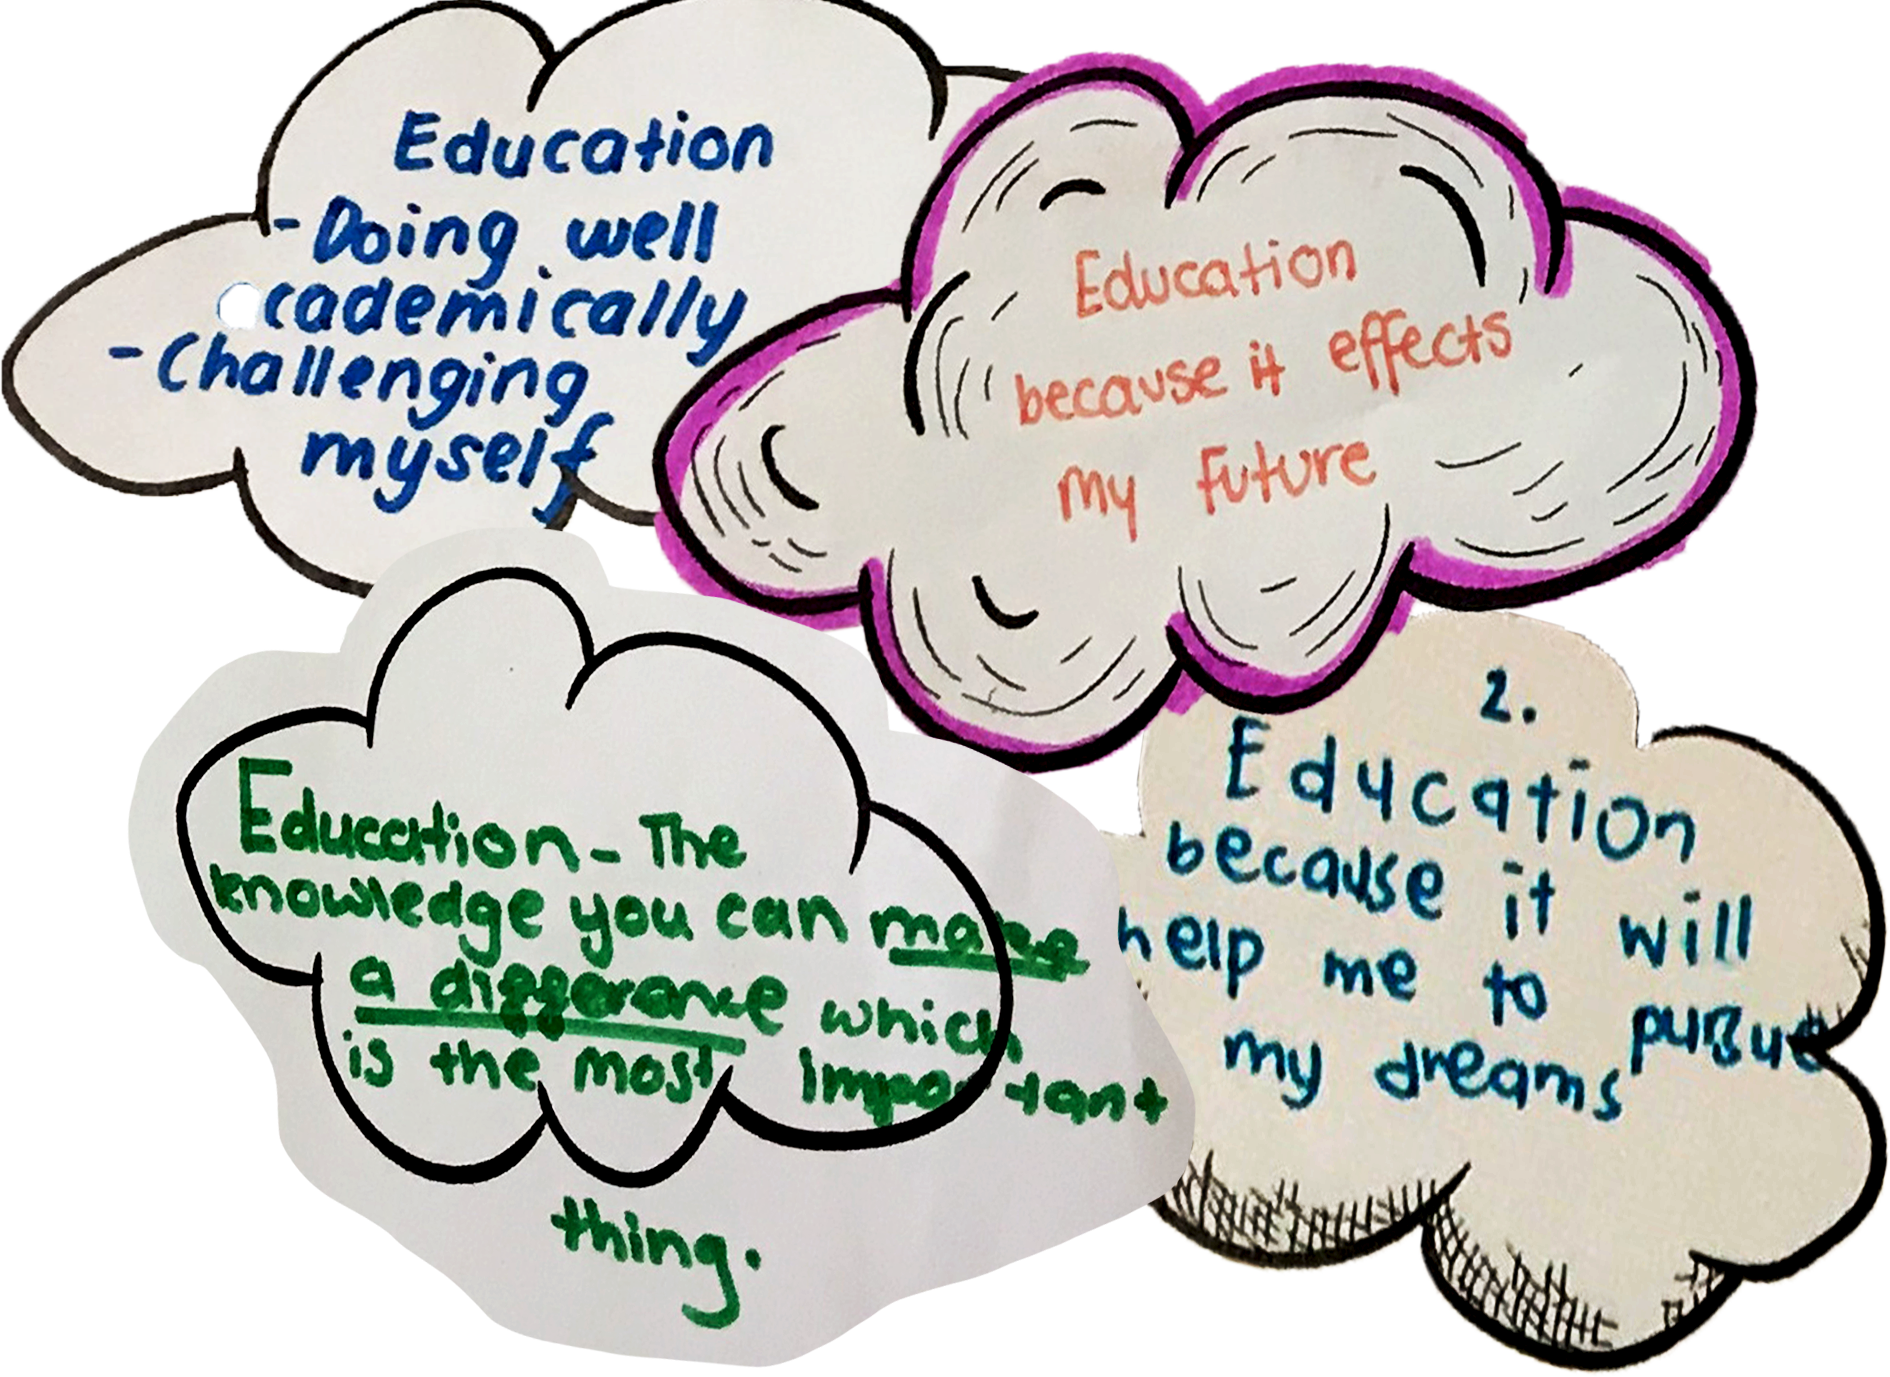 Education
-Doing well
cademically
-Challenging
myself
Education
because it effects
my future
Education - The
knowledge you can make
a difference which
is the most important
thing.
2.
Education
because it will
help me to pursue
my dreams